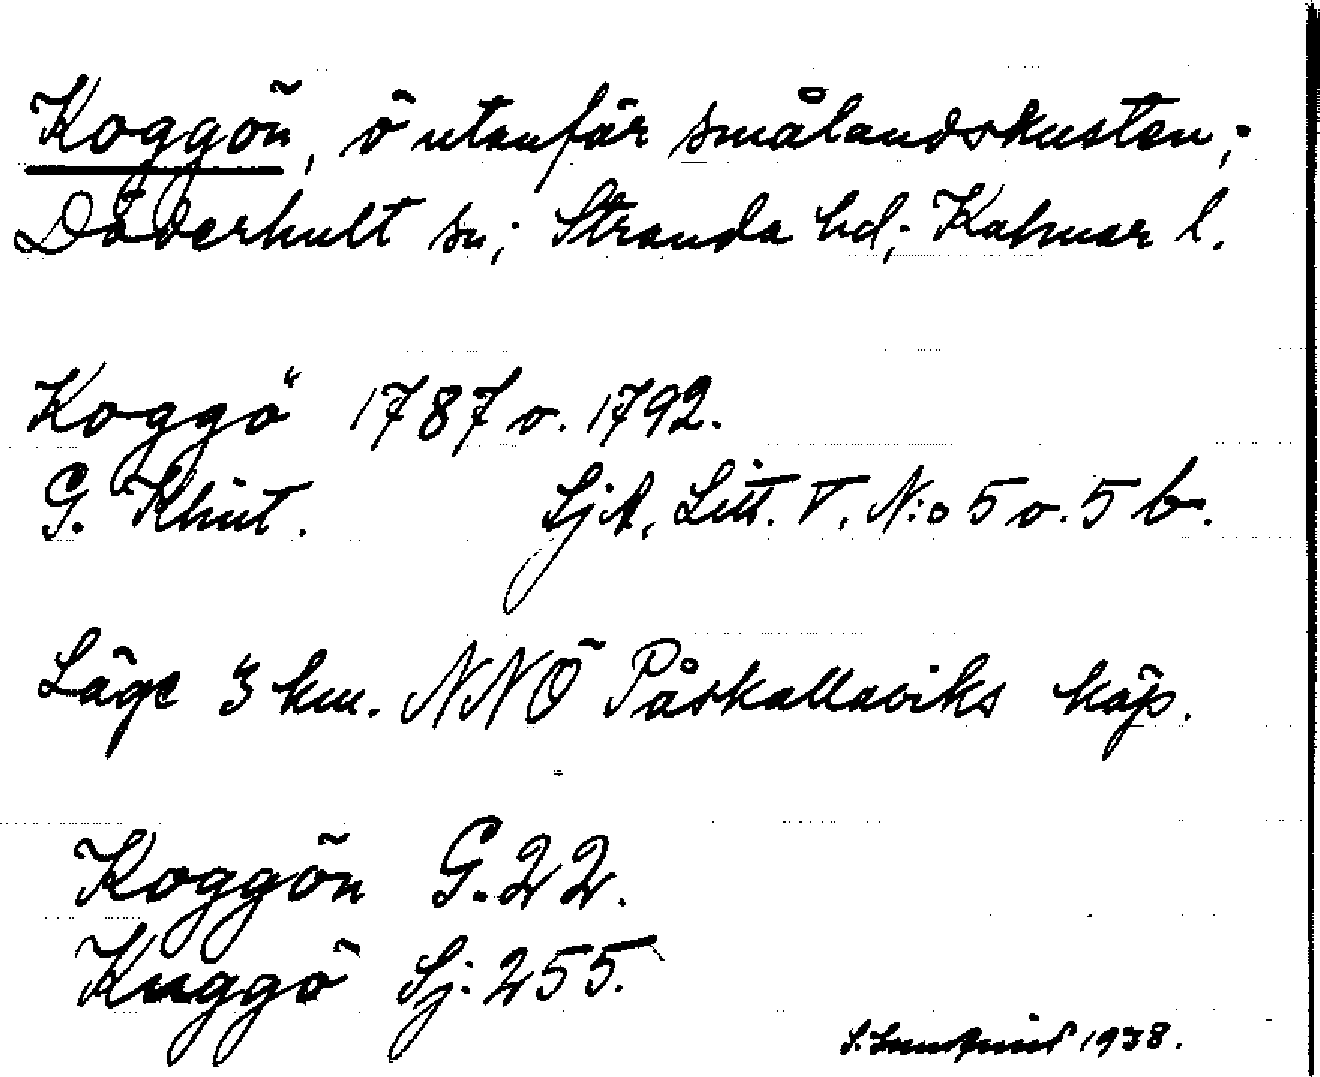 Koggön, ö utanför smålandskusten;
Döderhult sn; Stranda hd; Kalmar l.
Koggö 1787 o. 1792.
G. Klint. SjA, Litt. V. N:o 5 o. 5 b.
Läge 3 km. NNÖ Påskallaviks köp.
Koggön G. 22.
Kuggö Sj. 255.
1938.